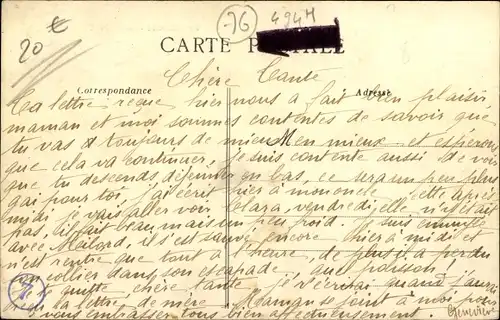 20 €
76
494H
CARTE POSTALE
Correspondance
Adresse
Chère Tante
Ta lettre reçue hier nous a fait bien plaisir
maman et moi sommes contentes de savoir que
tu vas toujours de mieux en mieux et espérons
que cela va continuer, je suis contente aussi de voir
que tu descends déjeuner en bas, ce sera un peu plus
gai pour toi, j'ai écrit hier à mononcle, cette après
midi je vais aller voir Clara, vendredi elle n'y était
pas, il fait beau, mais un peu froid. Je suis
avec Mailord, il s'est sauvé encore hier à midi et
n'est rentré que tout à l'heure, de plus il a perdu
son collier dans son escapade, quel poisson
Je te quitte, chère tante, je t'écrirai quand j'aurai
reçu la lettre de mère. Maman se joint à moi pour
vous embrasser tous bien affectueusement.
Geneviève